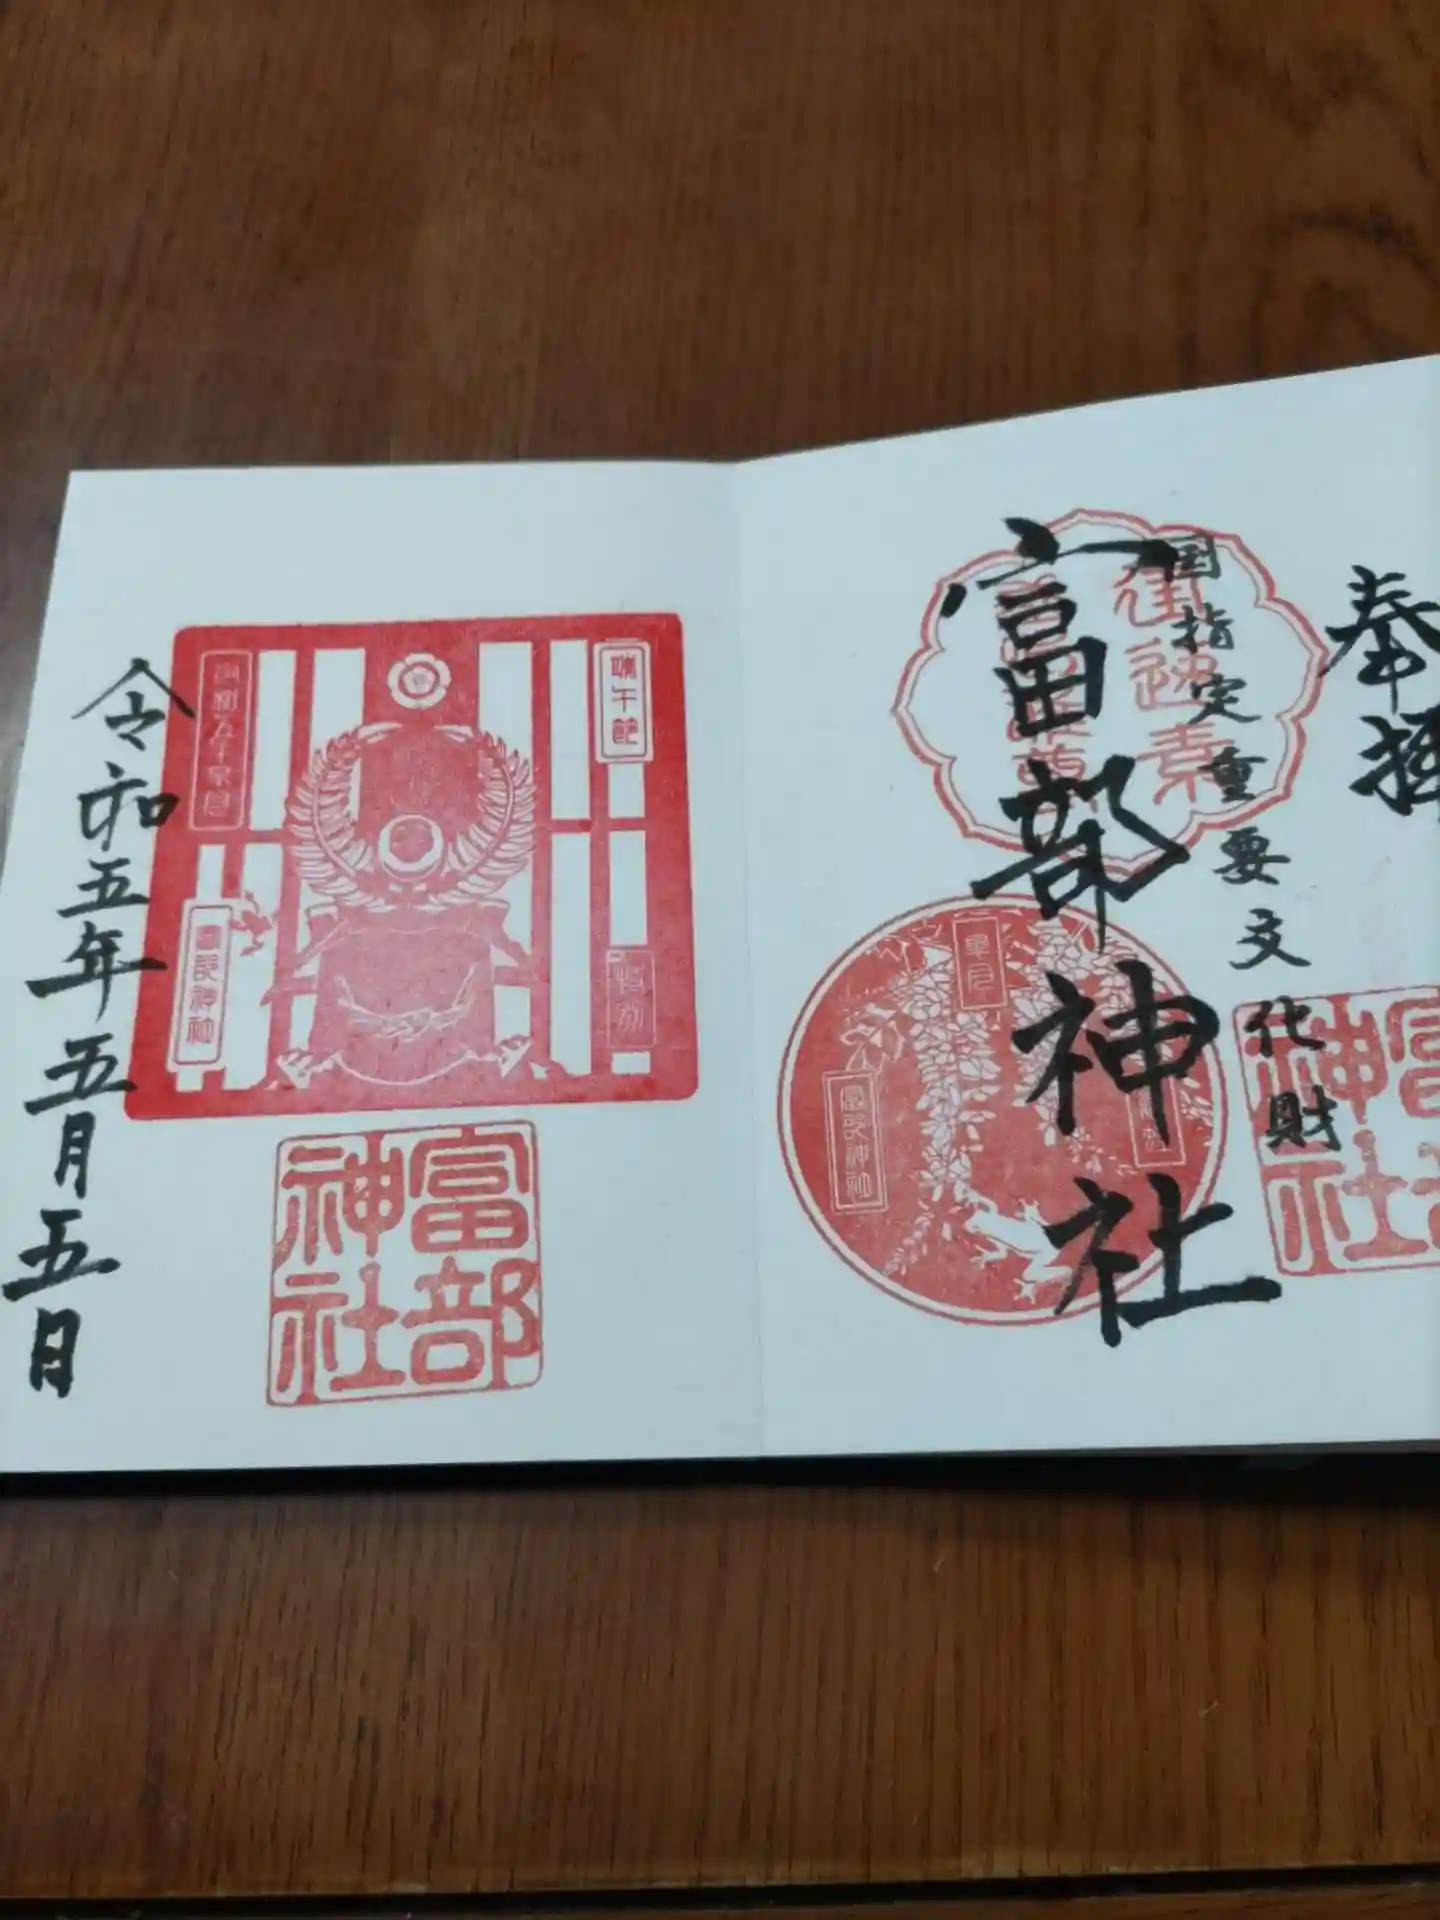 奉拝
国指定重要文化財
富部神社
皐月
富部神社
富部神社
端午節
特別
富部神社
富部神社
令和五年五月五日